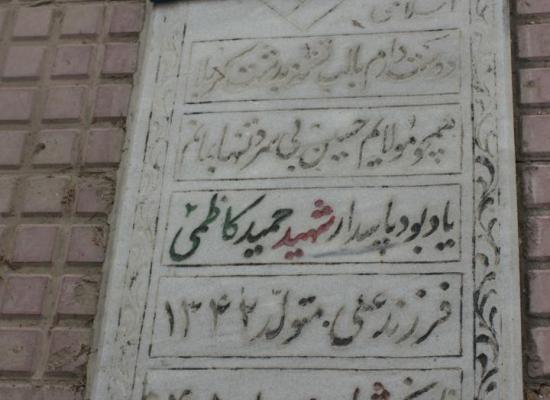 اسلامی
دوست دارم با لب تشنه به دشت کربلا
همچو مولایم حسین بی سر و تنها بمانم
یادبود پاسدار شهید حمید کاظمی
فرزند علی متولد ۱۳۴۲